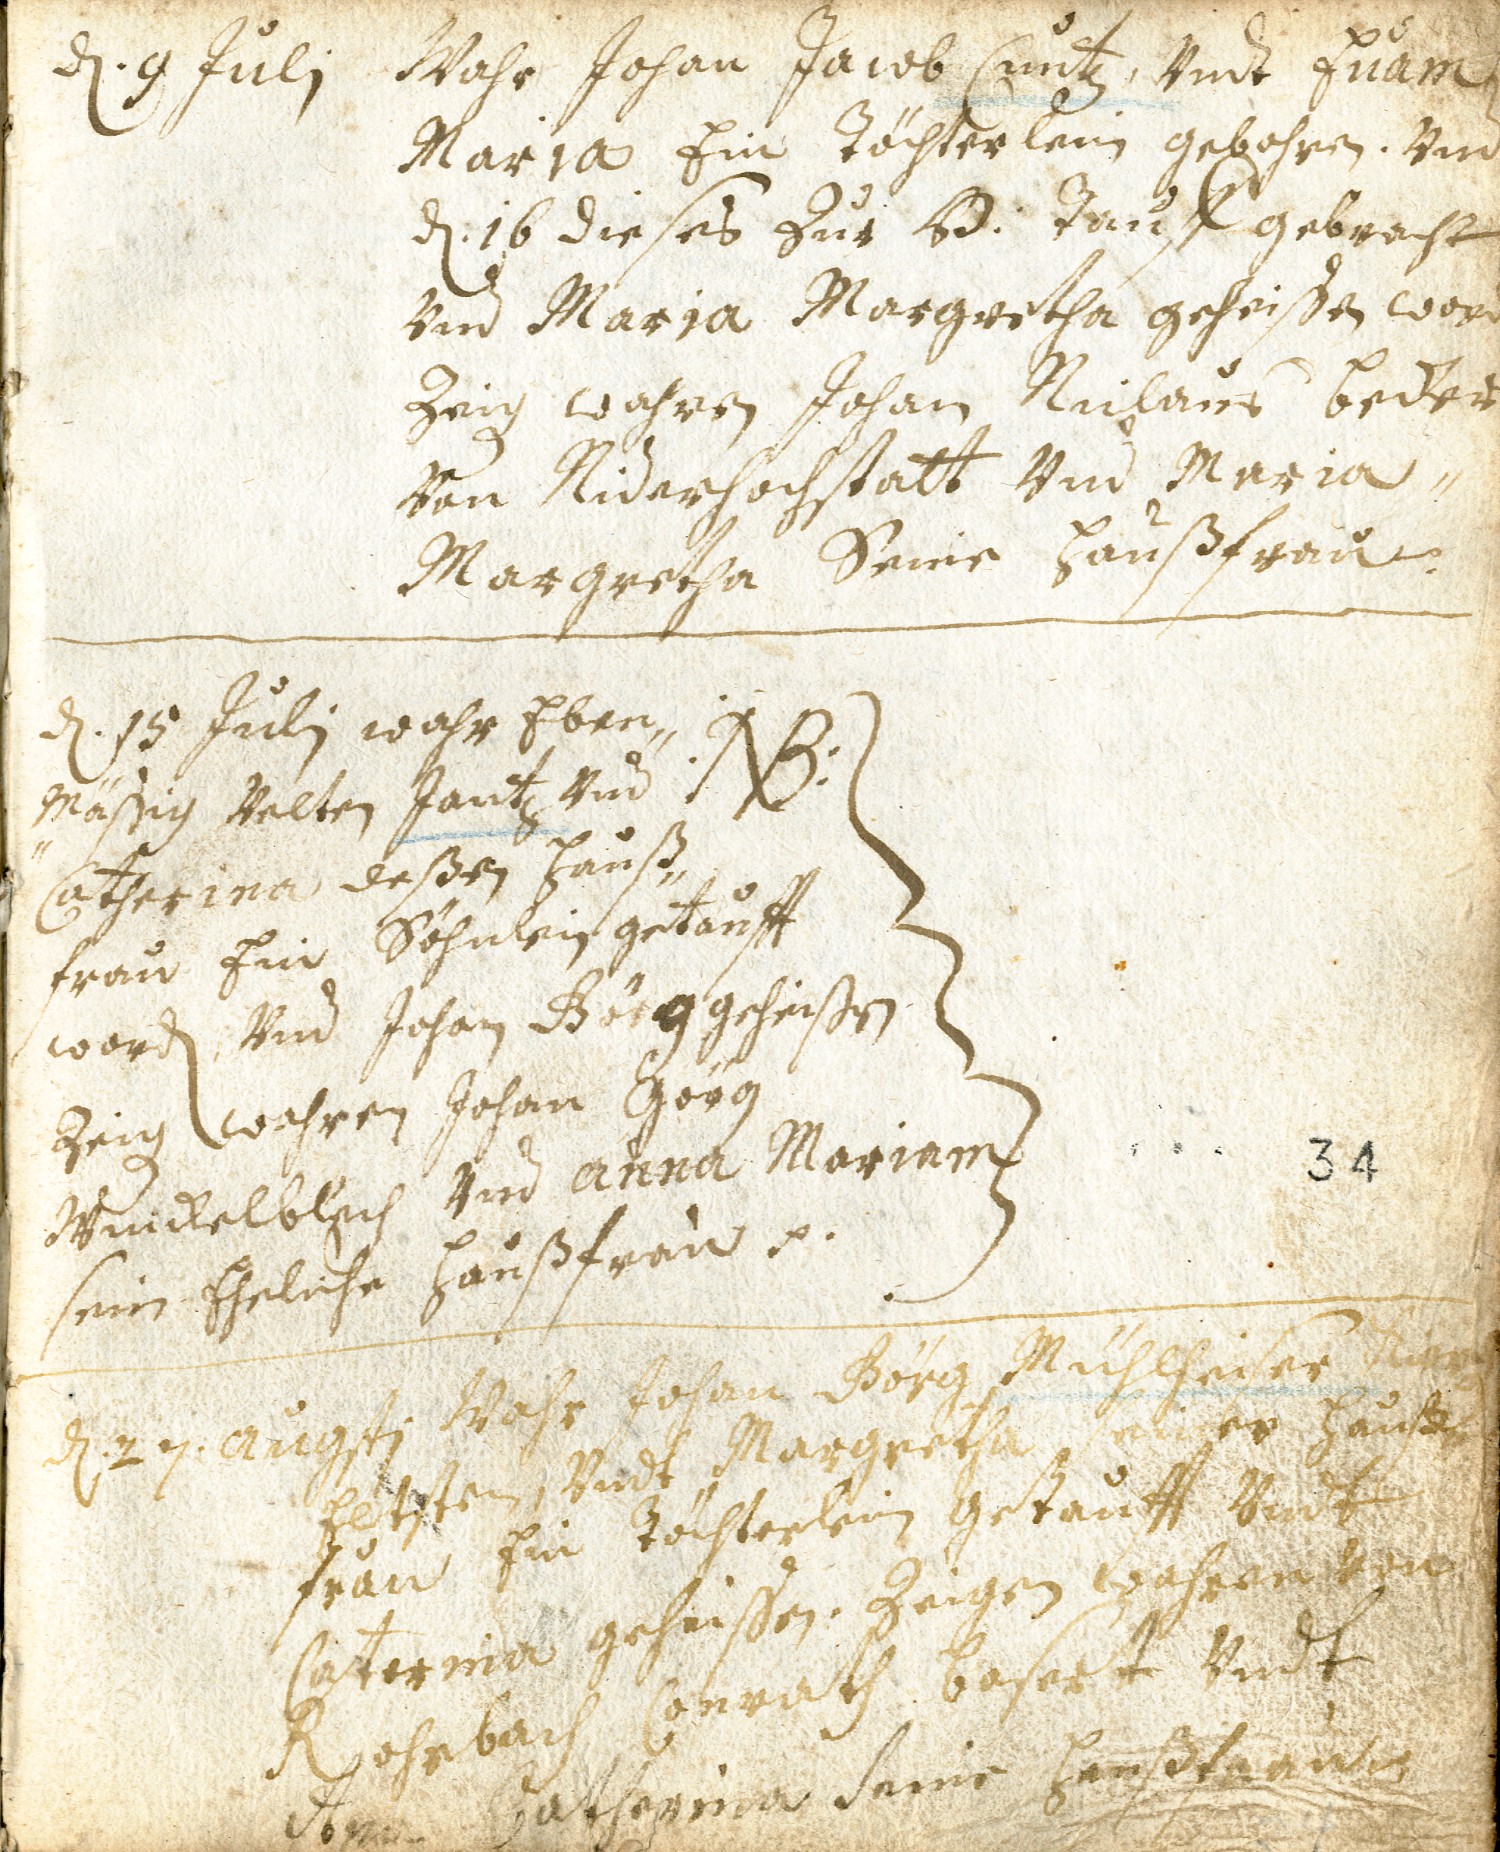 d. 9 Julj Wahr Johan Jacob Cuntz, Vndt Euam
Maria Ein Töchterlein gebohren. Vnd
d. 16 dieses Zur Tauff gebracht
Vnd Maria Margretha geheissen word
Zeig wahren Johan Niclaus becker
Von Niderhochstatt Vnd Maria „
Margretha Seine Haußfrau.
d. 15 Julj wahr Eben„ NB:
„Mässig Velten Jantz Vnd
Catherina deßen Hauß„
frau Ein Söhnlein getaufft
word Vnd Johan Görg geheißen
Zeig wahren Johan Görg
Wendelblech Vnd anna Mariam
sein Eheliche Haußfrau
34
d. 27. augsti Wahr Johan Görg Mühlheiser
Eltsten, Vndt Margretha seiner Hauß
frau Ein Töchterlein getaufft Vndt
Caterina geheissen. Zeigen wahren von
Rohrbach Conrath bosert Vndt
Catherina seine Haußfrau